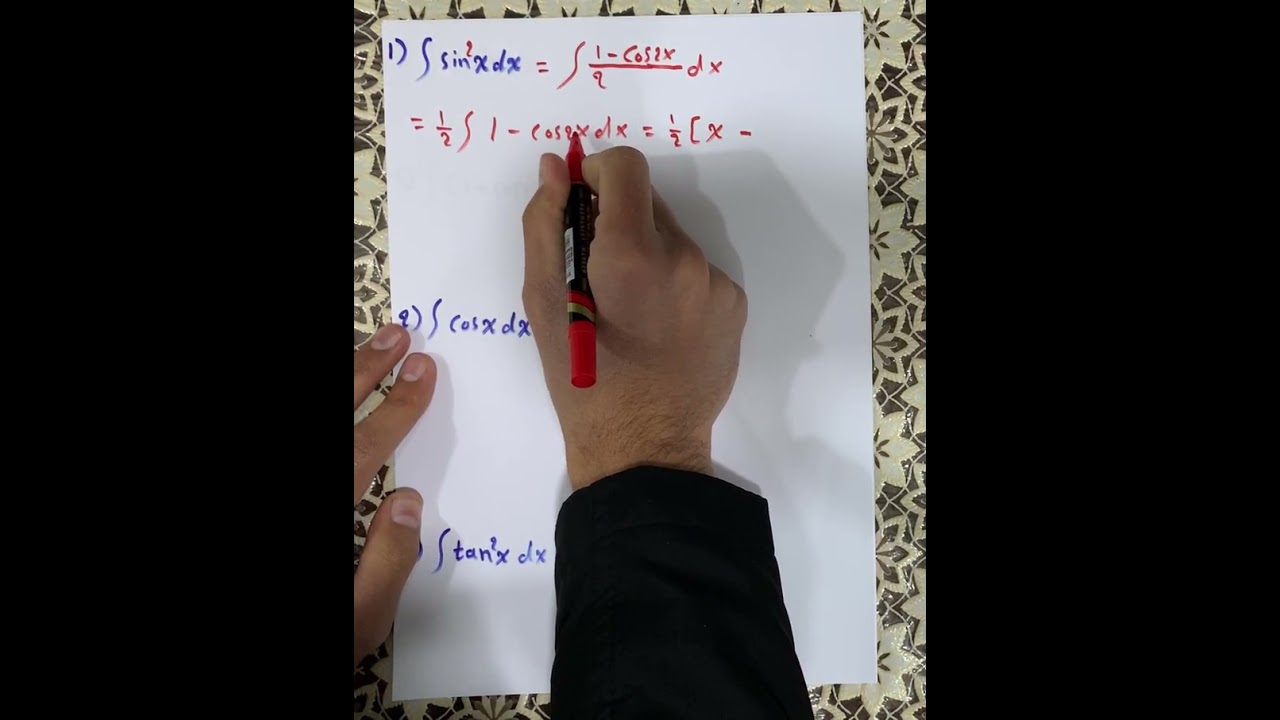 1) ∫ sin²x dx = ∫ (1 - cos2x)/2 dx
= 1/2 ∫ 1 - cos2x dx = 1/2 [ x -
2) ∫ cosx dx
) ∫ tan²x dx